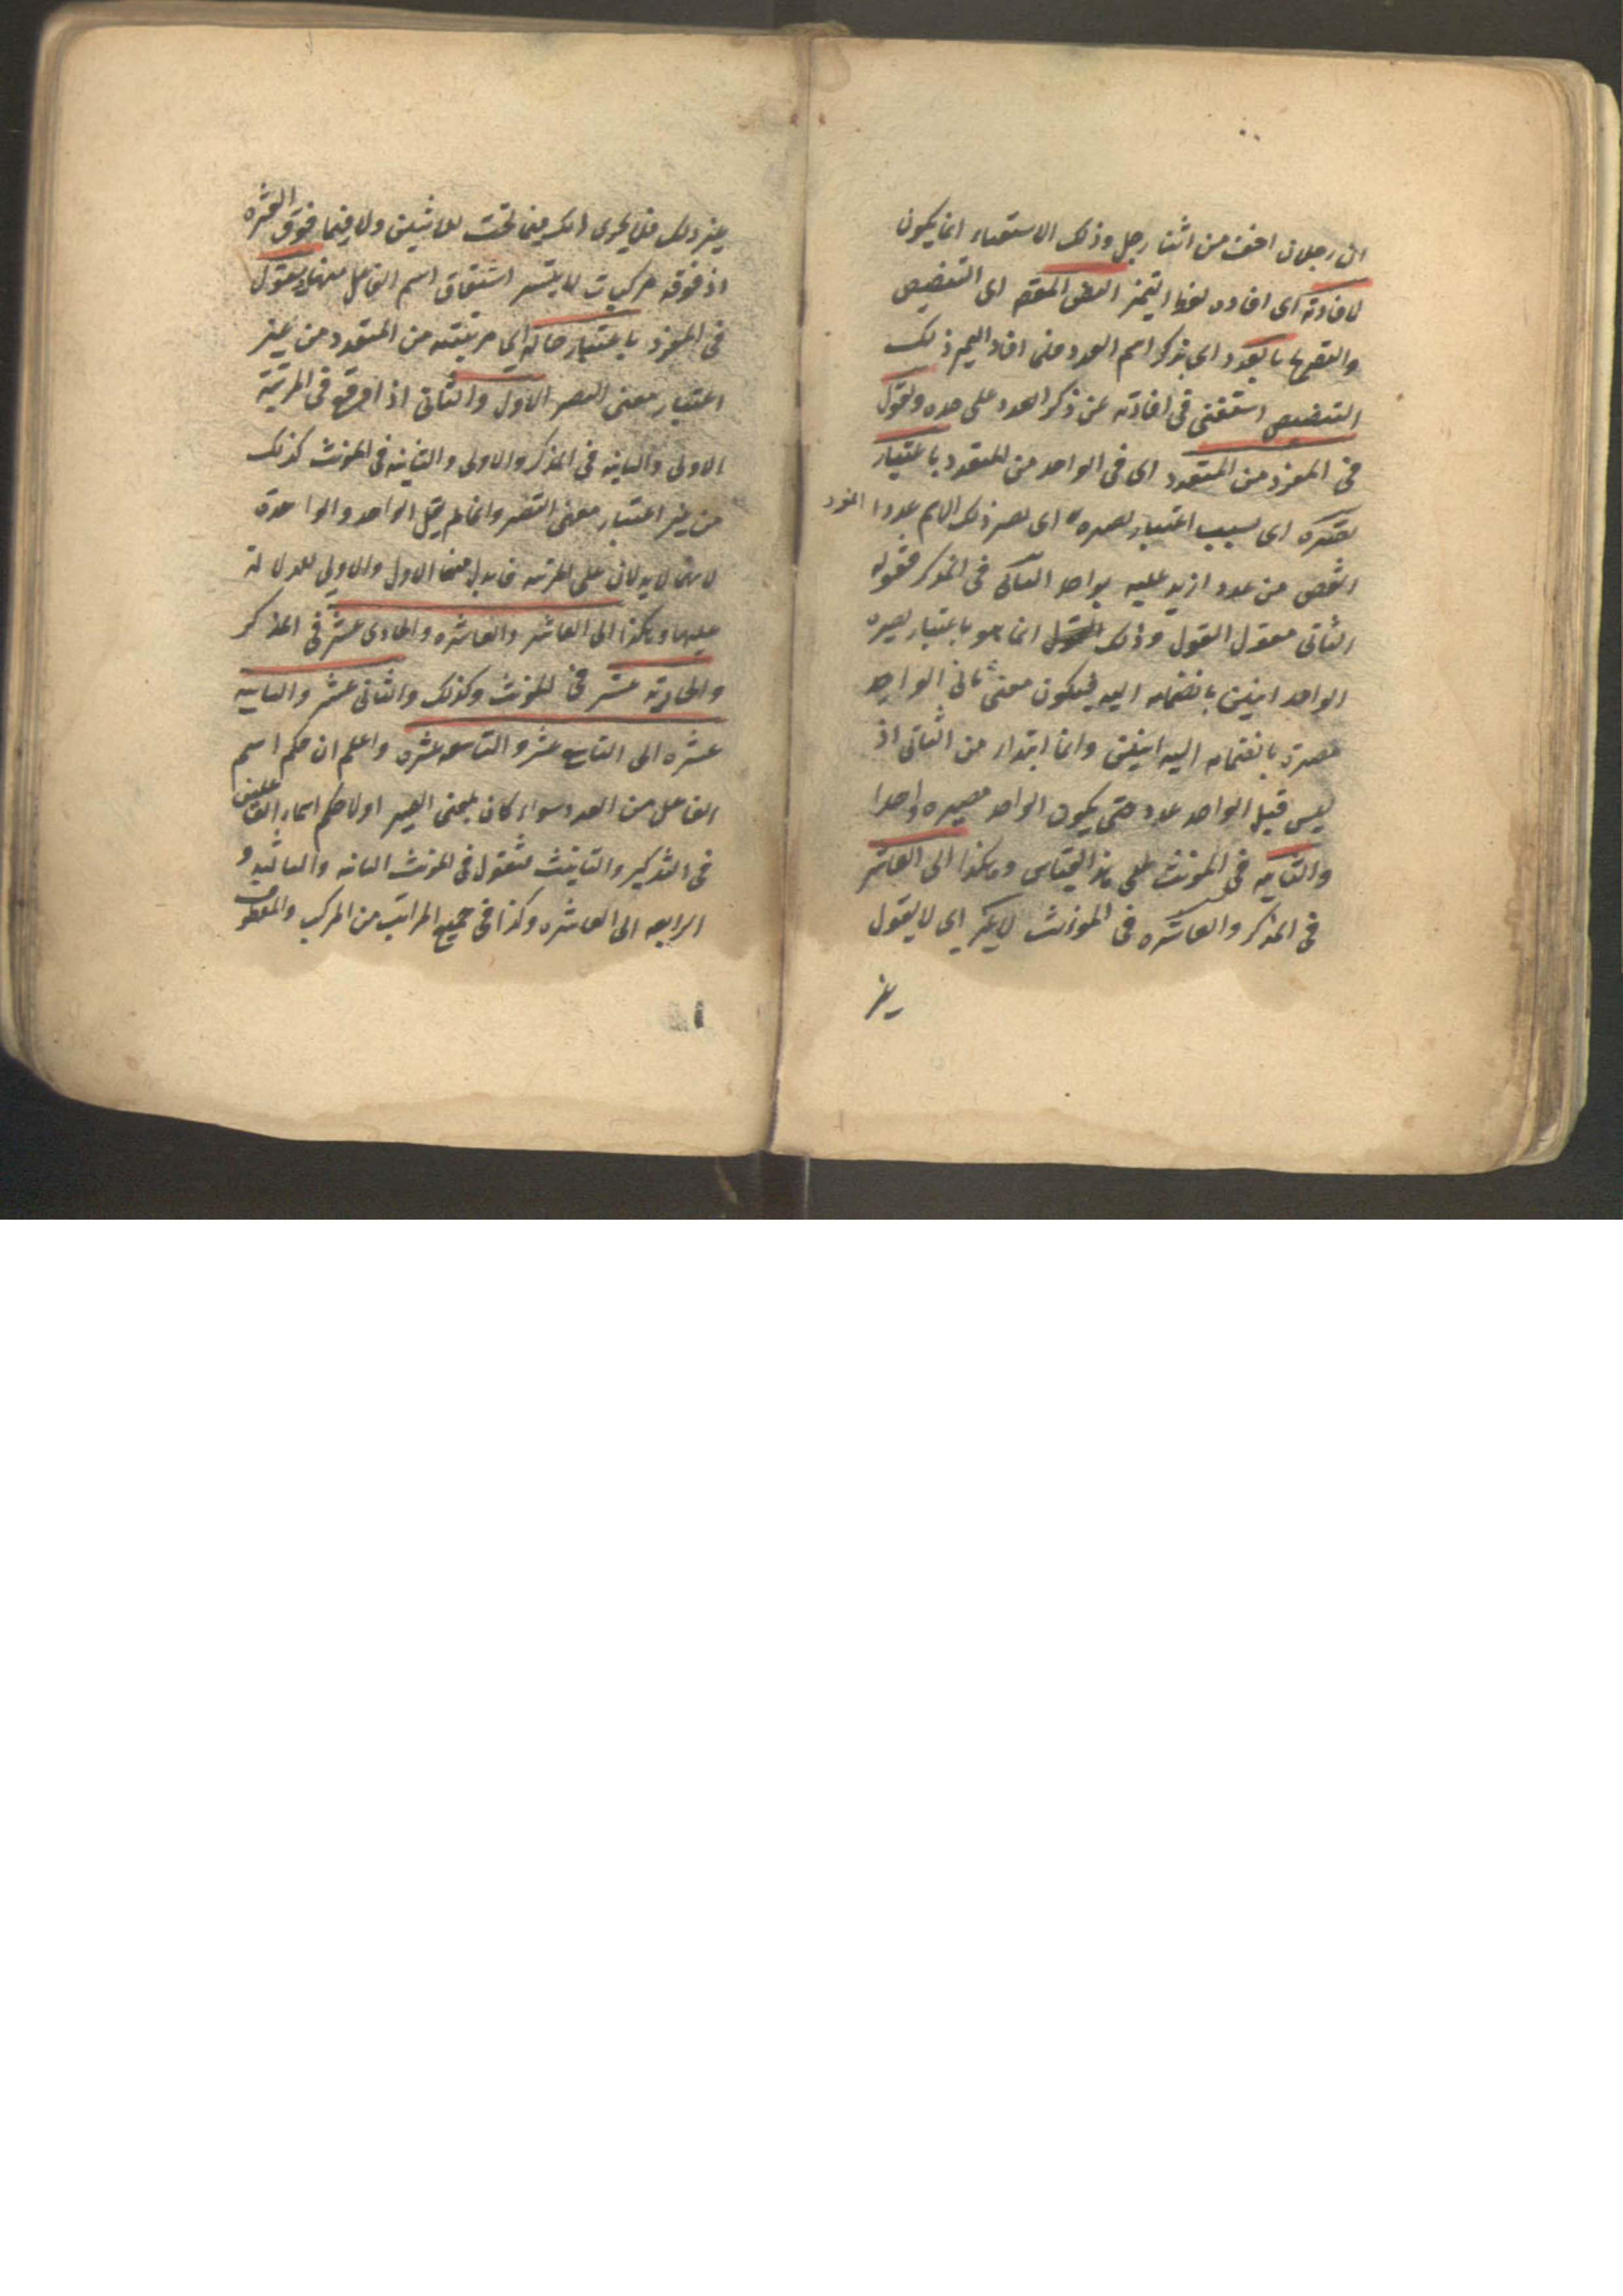 ان رجلان اخف من اثنا رجل وذلك الاستغناء انما يكون
لافادته اى افاده لفظ التميز النص المقصود اى التنصيص
والمقصود بالعدد اى بذكر اسم العدد فلما افاد التميز ذلك
التنصيص استغنى فى افادته عن ذكر العدد على حده وتقول
فى المفرد من المتعدد اى فى الواحد من المتعدد باعتبار
تصييره اى بسبب اعتبار تصييره اى تصير ذلك الاسم عددا
انقص من عدد ازيد عليه بواحد الثانى فى المذكر فقوله
الثانى مقول القول وذلك القول انما هو باعتبار تصييره
الواحد اثنين بانضمامه اليه فيكون معنى ثانى الواحد
مصيره بانضمامه اليه اثنين وانما ابتدا من الثانى اذ
ليس قبل الواحد عدد حتى يكون الواحد مصيره واحدا
والثانيه فى المؤنث على هذا القياس وهكذا الى العاشر
فى المذكر والعاشره فى المؤنث لاغير اى لا يقول
غير
غير ذلك فلا يجرى ذلك فيما تحت الاثنين ولا فيما فوق العشره
اذ فوقه مركبات لا يتيسر اشتقاق اسم الفاعل منها ويقول
فى المفرد باعتبار حاله اى مرتبته من المتعدد من غير
اعتبار معنى التصيير الاول والثانى اذا وقع فى المرتبة
الاولى والثانيه فى المذكر والاولى والثانيه فى المؤنث كذلك
من غير اعتبار معنى التصيير وانما لم يقل الواحد والواحدة
لانهما لا يدلان على المرتبه فابدل منهما الاول والاولى للدلالة
عليها وهكذا الى العاشر والعاشره والحادى عشر فى المذكر
والحادية عشر فى المؤنث وكذلك والثانى عشر والثانيه
عشره الى التاسع عشر والتاسعه عشره واعلم ان حكم اسم
الفاعل من العدد سواء كان بمعنى التصيير اولا حكم اسماء الفاعلين
فى التذكير والتانيث فتقول فى المؤنث الثانيه والثالثه و
الرابعه الى العاشره وكذا فى جميع المراتب من المركب والمعطوف